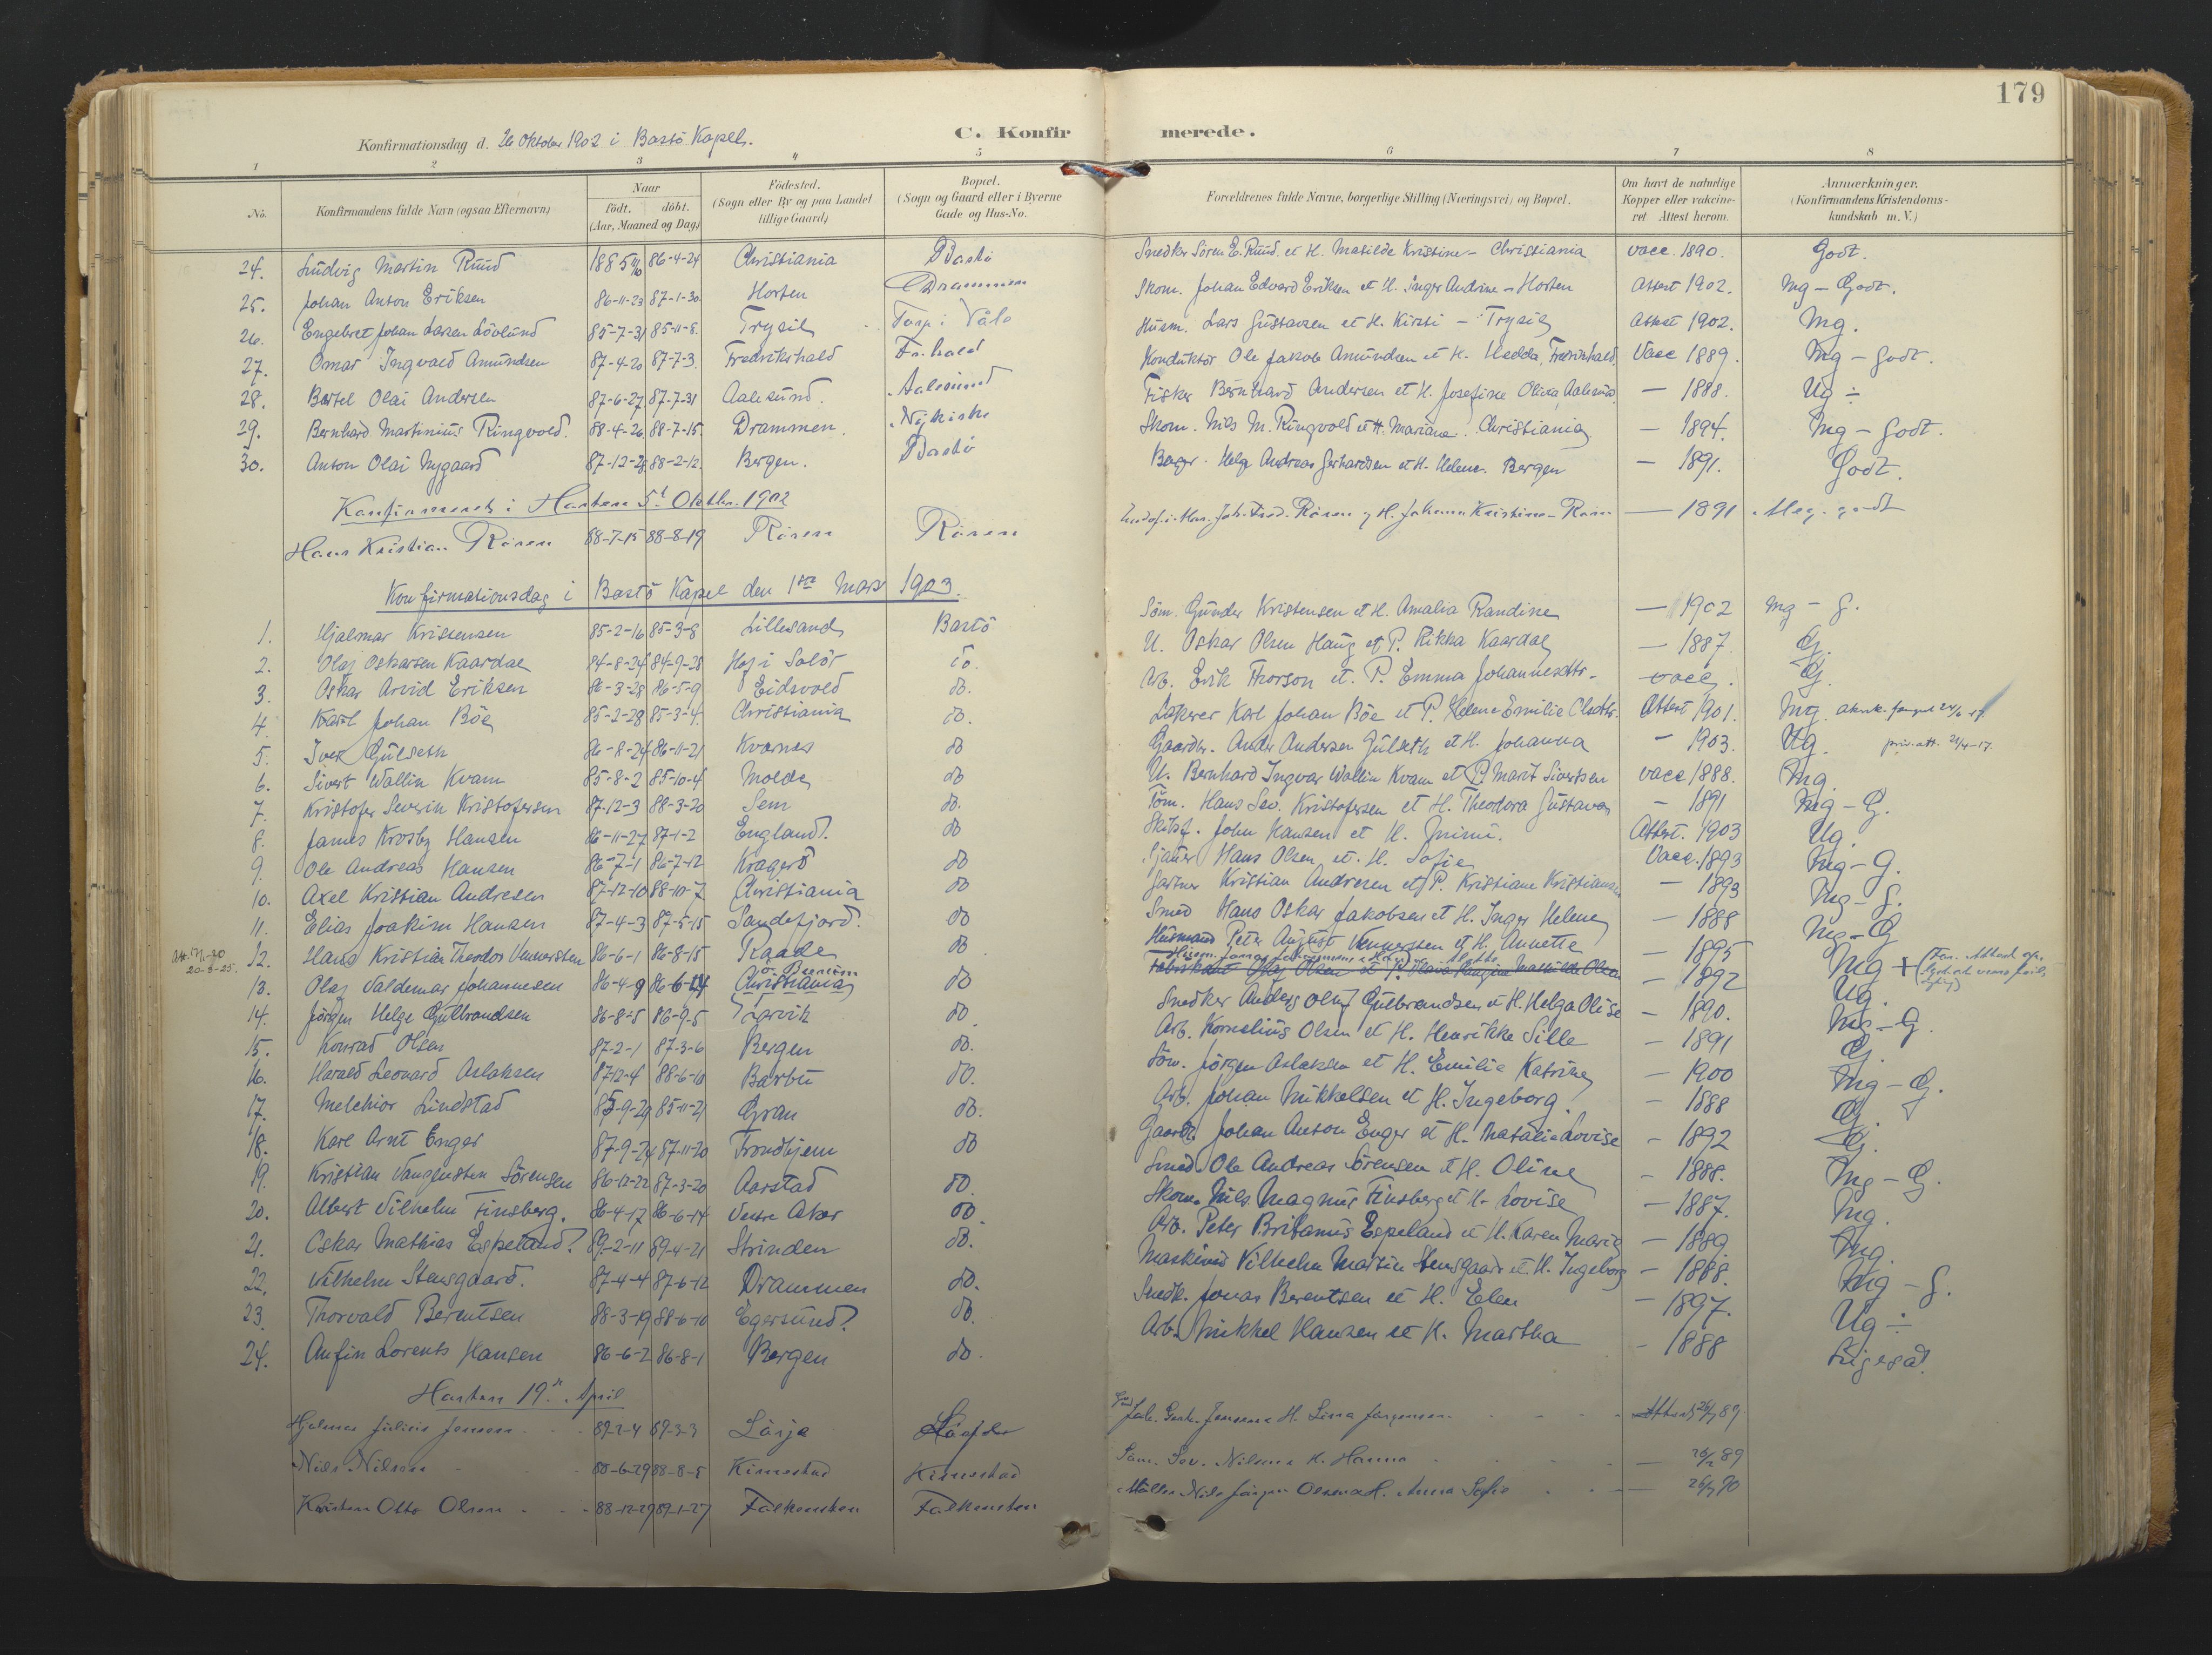 179
C. Konfirmerede.
Konfirmationsdag d. 26 Oktober 1902 i Bastö Kapel.
1 2 3 4 5 6 7 8
No. Konfirmandens fulde Navn (ogsaa Efternavn) Naar født. døbt. (Aar, Maaned og Dag) Födested. (Sogn eller By og paa Landet tillige Gaard) Bopæl. (Sogn og Gaard eller i Byerne Gade og Hus-No. Forældrenes fulde Navne, borgerlige Stilling (Næringsvei) og Bopæl. Om havt de naturlige Kopper eller vakcineret Attest herom. Anmærkninger. (Konfirmandens Kristendomskundskab m. V.)
24. Ludvig Martin Ruud 1885 86-4-24 Christiania Bastö Snedker Sören E. Ruud et H. Matilde Kristine - Christiania vacc. 1890. Godt.
25. Johan Anton Eriksen 86-11-23 87-1-30 Horten Drammen Skom. Johan Edvard Eriksen et H. Inger Andrine - Horten Attest 1902. Mg - Godt.
26. Engebret Johan Larsen Lövlund 85-7-31 85-11-8. Trysil Torp i Våle Husm. Lars Gustavsen et H. Kirsti - Trysil Attest 1902. Mg.
27. Omar Ingvald Amundsen 87-4-20 87-7-3 Fredrikshald Fr.hald Konduktör Ole Jakob Amundsen et H. Hedda, Fredrikshald. Vacc 1889. Mg - Godt.
28. Bertel Olai Andersen 87-6-27 87-7-31 Aalesund. Aalesund Fisker Bernhard Andersen et H. Josefine Oliva, Aalesund - 1888. Ug ÷
29. Bernhard Martinius Ringvold. 88-4-26 88-7-15. Drammen. Nykirke Skom. Nils M. Ringvold et H. Mariane. Christiania - 1894. Mg - Godt.
30. Anton Olai Nygaard 87-12-28 88-2-12. Bergen. Bastö Bager. Helge Andreas Gerhardsen et H. Helene. Bergen - 1891. Godt.
Konfirmeret i Horten 5t Oktbr. 1902
Hans Kristian Rören 88-7-15 88-8-19 Rören Rören Joh. Fred. Rören og H. Johanne Kristine - Rören - 1891 Meg. godt
Konfirmationsdag i Bastö Kapel den 1ste Mars 1903.
1. Hjalmar Kristensen 85-2-16 85-3-8 Lillesand Bastö Söm. Gunder Kristensen et H. Amalia Randine - 1902 Mg - G.
2. Olaf Oskarsen Kaardal 84-8-24 84-9-28 Hof i Solör do. U. Oskar Olsen Haug et P. Rikka Kaardal - 1887. G.
3. Oskar Arvid Eriksen 86-3-28 86-5-9 Eidsvold do. Arb. Erik Thorson et P. Emma Johannesdtr. - vacc. G.
4. Karl Johan Böe 85-2-28 85-3-4. Christiania do. Lakerer Karl Johan Böe et P. Helene Emilie Olsdtr. Attest 1901. Mg.
5. Iver Gulseth 86-8-24 86-11-21 Kvernes do Gaardbr. Ander Andersen Gulseth et H. Johanna - 1903. Ug. priv. att. 21/4-17.
6. Sivert Wallin Kvam 85-8-2 85-10-4 Molde do U. Bernhard Ingvar Wallin Kvam et P. Marit Sivertsen vacc 1888. Mg.
7. Kristofer Severin Kristofersen 87-12-3 88-3-20 Sem do. Töm. Hans Sev. Kristofersen et H. Theodora Gustava - 1891 Mg - G.
8. James Krosby Hansen 86-11-27 87-1-2 England. do Skibsf. John Hansen et H. Attest. 1903 Ug.
9. Ole Andreas Hansen 86-7-1 86-7-12 Kragerö do Sjauer Hans Olsen et H. Sofie Vacc. 1893 Mg - G.
10. Axel Kristian Andresen 87-12-10 88-10-7 Christiania do Gartner Kristian Andresen et P. Kristiane Kristiansen - 1893 Mg - G.
11. Elias Joakim Hansen 87-4-3 87-5-15 Sandefjord. do Smed Hans Oskar Jakobsen et H. Inger Helene - 1888 Mg - G
12. Hans Kristian Theodor Vennersten 86-6-1 86-8-15 Raade do Husmand Peter August Vennersten et H. Annette - 1895 Mg +
20-3-25.
13. Olaf Valdemar Johannesen 86-4-9 86-6-24 Christiania do Fabrikant Olaf Olsen et P. Mathilde Olsen - 1892 Ug.
14. Jörgen Helge Gulbrandsen 86-8-5 86-9-5 Larvik do Snedker Anders Oluf Gulbrandsen et H. Helga Olise - 1890. Mg - G.
15. Konrad Olsen 87-2-1 87-3-6 Bergen do. Arb. Kornelius Olsen et H. Henrikke Sille - 1891 G.
16. Harald Leonard Aslaksen 87-12-4 88-6-10 Barbu do. Söm. Jörgen Aslaksen et H. Emilie Katrine - 1900 Mg - G.
17. Melchior Lindstad 85-9-29 85-11-21 Gran do. Arb. Johan Mikkelsen et H. Ingeborg. - 1888 G.
18. Karl Arnt Enger 87-9-24 87-11-20 Trondhjem do Gaardb. Johan Anton Enger et H. Natalie Lovise - 1892 G.
19. Kristian Vangensten Sörensen 86-12-22 87-3-20 Aarstad do. Smed. Ole Andreas Sörensen et H. Oline - 1888. Mg - G.
20. Albert Vilhelm Finsberg. 86-4-17 86-6-14 Vestre Aker do. Skom. Nils Magnus Finsberg et H. Lovise - 1887. Mg.
21. Oskar Mathias Espeland? 89-2-11 89-4-21 Strinden do. Arb. Peter Britanus Espeland et H. Karen Marie - 1889. Mg.
22. Vilhelm Stensgaard. 87-4-4 87-6-12 Drammen do. Maskinist Vilhelm Martin Stensgaard et H. Ingeborg - 1888. Mg - G.
23. Thorvald Berentsen 88-3-19 88-6-10 Egersund? do. Snedk. Jonas Berentsen et H. Elen - 1897. Ug ÷
24. Anfin Lorents Hansen 86-6-2 86-8-1 Bergen do. Arb. Mikkel Hansen et H. Martha - 1888
Horten 19de April
Hjalmar Julius Jensen 89-2-4 89-3-3 Jensen H. Lina Jörgensen Attest 89
Nils Nilsen 88-6-29 88-8-5 Kirnestad Kirnestad Sev. Nilsen H. Hanna - 89
Karsten Otto Olsen 88-12-29 89-1-27 Falkensten Falkensten Möller Nils Jörgen Olsen H. Anna Sofie - 90